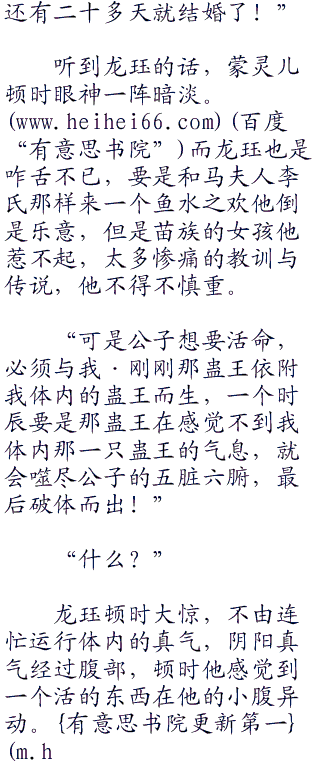 还有二十多天就结婚了！”
听到龙珏的话，蒙灵儿
顿时眼神一阵暗淡。
(www.heihei66.com)(百度
“有意思书院”)而龙珏也是
咋舌不已，要是和马夫人李
氏那样来一个鱼水之欢他倒
是乐意，但是苗族的女孩他
惹不起，太多惨痛的教训与
传说，他不得不慎重。
“可是公子想要活命，
必须与我·刚刚那蛊王依附
我体内的蛊王而生，一个时
辰要是那蛊王在感觉不到我
体内那一只蛊王的气息，就
会噬尽公子的五脏六腑，最
后破体而出！”
“什么？”
龙珏顿时大惊，不由连
忙运行体内的真气，阴阳真
气经过腹部，顿时他感觉到
一个活的东西在他的小腹异
动。{有意思书院更新第一}
(m.h